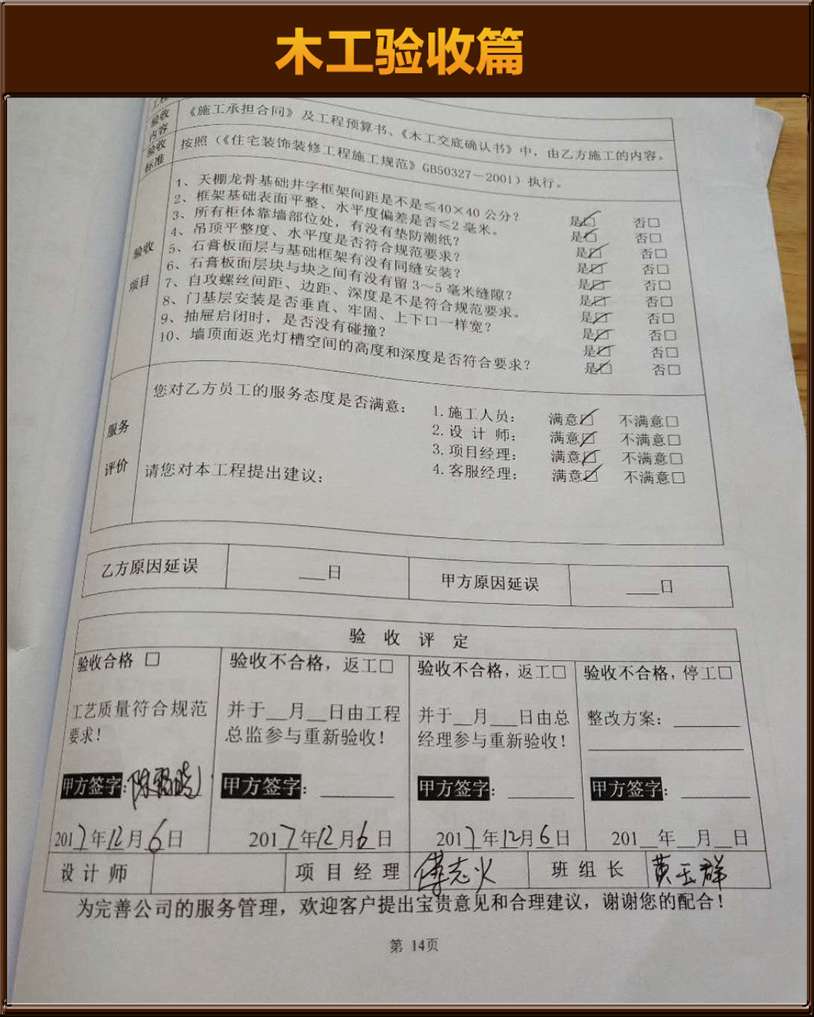 木工验收篇
验收
内容
《施工承担合同》及工程预算书、《木工交底确认书》中，由乙方施工的内容。
验收
标准
按照（《住宅装饰装修工程施工规范》GB50327－2001）执行。
验收
项目
1、天棚龙骨基础井字框架间距是不是≤40×40公分？ 是☑ 否□
2、框架基础表面平整、水平度偏差是否≤2毫米。 是☑ 否□
3、所有柜体靠墙部位处，有没有垫防潮纸？ 是☑ 否□
4、吊顶平整度、水平度是否符合规范要求？ 是☑ 否□
5、石膏板面层与基础框架有没有同缝安装？ 是☑ 否□
6、石膏板面层块与块之间有没有留3～5毫米缝隙？ 是☑ 否□
7、自攻螺丝间距、边距、深度是不是符合规范要求。 是☑ 否□
8、门基层安装是否垂直、牢固、上下口一样宽？ 是☑ 否□
9、抽屉启闭时，是否没有碰撞？ 是☑ 否□
10、墙顶面返光灯槽空间的高度和深度是否符合要求？ 是☑ 否□
服务
评价
您对乙方员工的服务态度是否满意：
1.施工人员： 满意☑ 不满意□
2.设 计 师： 满意☑ 不满意□
3.项目经理： 满意☑ 不满意□
4.客服经理： 满意☑ 不满意□
请您对本工程提出建议：
乙方原因延误 ___日 甲方原因延误 ___日
验 收 评 定
验收合格 □ 验收不合格，返工□ 验收不合格，返工□ 验收不合格，停工□
工艺质量符合规范 并于__月__日由工程 并于__月___日由总 整改方案：______
要求！ 总监参与重新验收！ 经理参与重新验收！
甲方签字： 甲方签字：______ 甲方签字：______ 甲方签字：______
2017年12月6日 2017年12月6日 2017年12月6日 201__年__月__日
设计师 项目经理 班组长 黄玉群
为完善公司的服务管理，欢迎客户提出宝贵意见和合理建议，谢谢您的配合！
第 14页